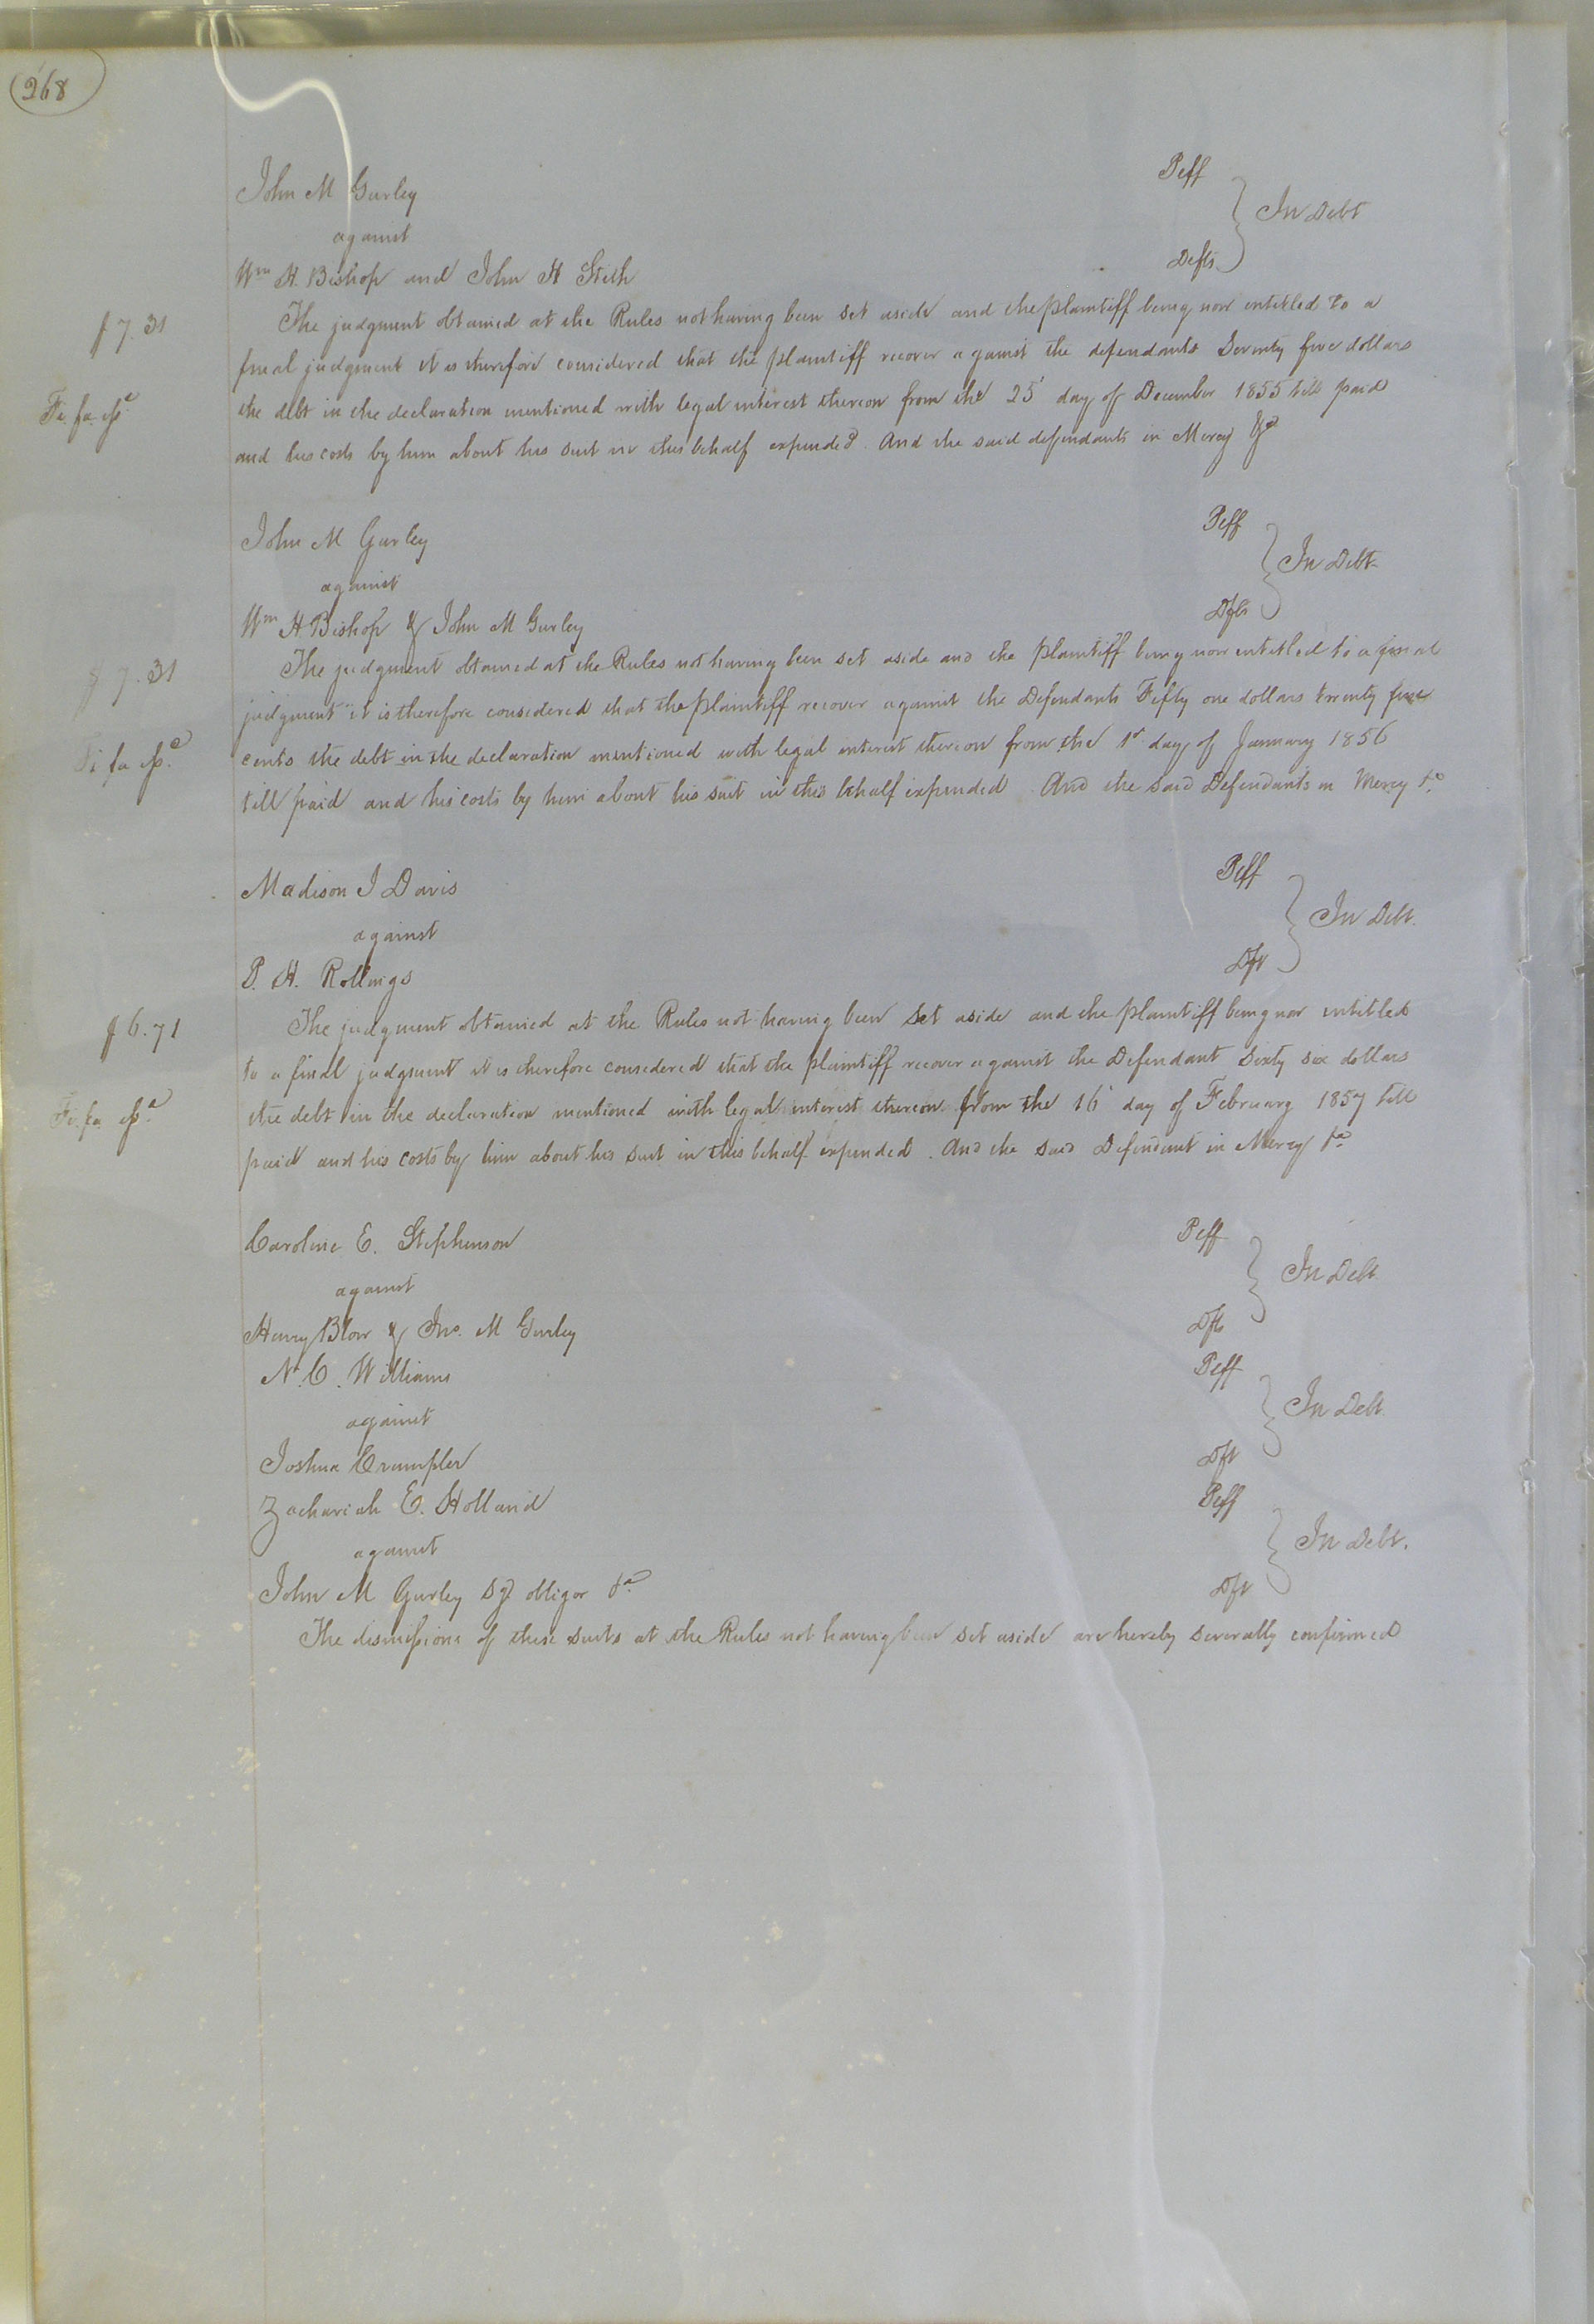 268
John M Gurley Plff
against In Debt
Wm H. Bishop and John H Stith Defts
The judgment obtained at the Rules not having been set aside and the plaintiff being now entitled to a
$7.31
final judgment it is therefore considered that the plaintiff recover against the defendants Seventy five dollars
the debt in the declaration mentioned with legal interest thereon from the 25 day of December 1855 till paid
Fi. fa.
and his costs by him about his suit in this behalf expended. And the said defendants in Mercy &c
John M Gurley Plff
against In Debt
Wm H Bishop & John M Gurley Dfts
The judgment obtained at the Rules not having been set aside and the plaintiff being now entitled to a final
$7.31
judgment it is therefore considered that the plaintiff recover against the Defendants Fifty one dollars twenty five
cents the debt in the declaration mentioned with legal interest thereon from the 1st day of January 1856
Fi fa
till paid and his costs by him about his suit in this behalf expended. And the said Defendants in Mercy &c
Madison J Davis Plff
against In Debt.
P. H. Rollings Dft
The judgment obtained at the Rules not having been set aside and the plaintiff being now entitled
$6.71
to a final judgment it is therefore considered that the plaintiff recover against the Defendant Sixty six dollars
the debt in the declaration mentioned with legal interest thereon from the 16 day of February 1857 till
Fi. fa
paid and his costs by him about his suit in this behalf expended. And the said Defendant in Mercy &c
Caroline E. Stephenson Plff
against In Debt
Henry Blow & Jno. M Gurley Dfts
N. C. Williams Plff
against In Debt
Joshua Crumpler Dft
Zachariah E. Holland Plff
against In Debt.
John M Gurley obligor &c Dft
The dismissions of these suits at the Rules not having been set aside are hereby severally confirmed